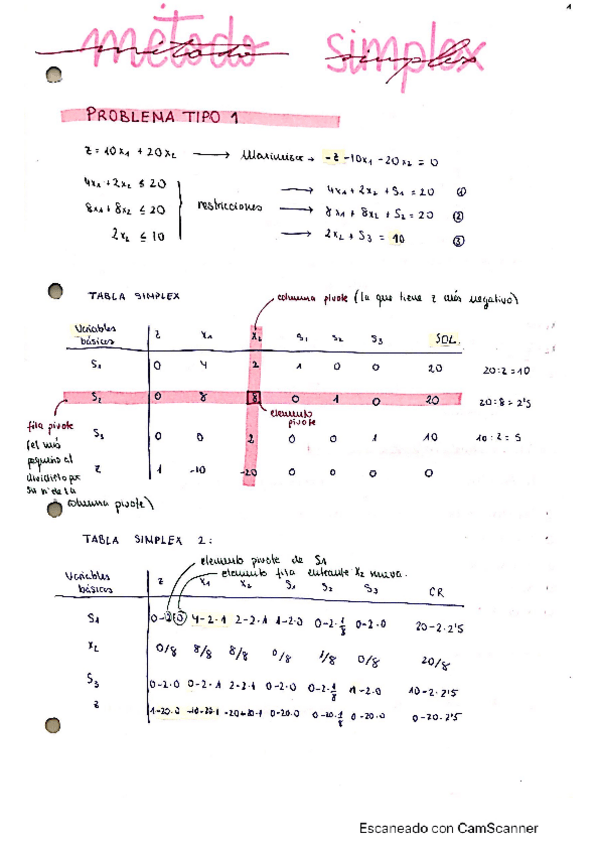 1
método simplex
PROBLEMA TIPO 1
z = 10x₁ + 20x₂ → Maximizar → -z -10x₁ -20x₂ = 0
4x₁ + 2x₂ ≤ 20 → 4x₁ + 2x₂ + S₁ = 20 ①
8x₁ + 8x₂ ≤ 20 restricciones → 8x₁ + 8x₂ + S₂ = 20 ②
2x₂ ≤ 10 → 2x₂ + S₃ = 10 ③
TABLA SIMPLEX
columna pivote (la que tiene z más negativo)
Variables básicas z x₁ x₂ s₁ s₂ s₃ SOL.
S₁ 0 4 2 1 0 0 20 20:2=10
S₂ 0 8 8 0 1 0 20 20:8=2'5
elemento pivote
fila pivote
(el más
pequeño al
dividirlo por
su nº de la
columna pivote)
S₃ 0 0 2 0 0 1 10 10:2=5
z 1 -10 -20 0 0 0 0
TABLA SIMPLEX 2:
elemento pivote de S₁
elemento fila entrante x₂ nueva.
Variables básicas z x₁ x₂ S₁ S₂ S₃ CR
S₁ 0-2·0 4-2·1 2-2·1 1-2·0 0-2·1/8 0-2·0 20-2·2'5
x₂ 0/8 8/8 8/8 0/8 1/8 0/8 20/8
S₃ 0-2·0 0-2·1 2-2·1 0-2·0 0-2·1/8 1-2·0 10-2·2'5
z 1-20·0 -10-20·1 -20-20·1 0-20·0 0-20·1/8 0-20·0 0-20·2'5
Escaneado con CamScanner